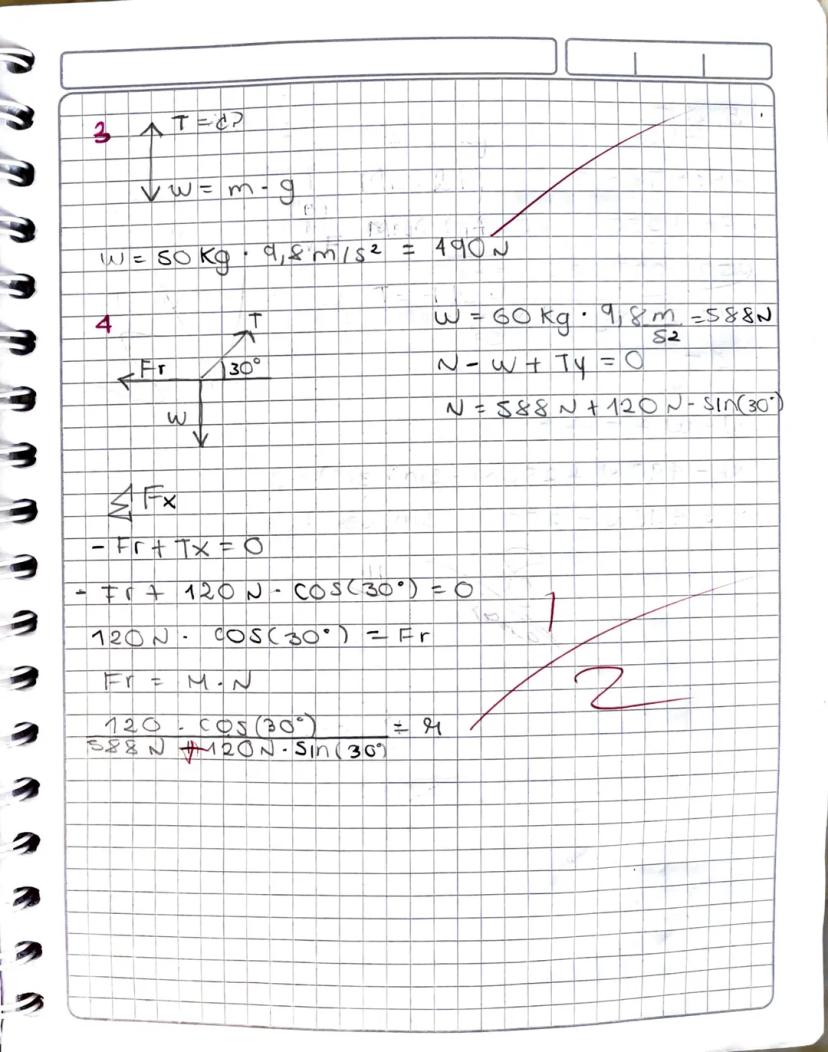 3
T = ¿?
W = m · g
W = 50 Kg · 9,8 m/s² = 490 N
4
T
Fr
30°
W
W = 60 Kg · 9,8 m/s² = 588 N
N - W + Ty = 0
N = 588 N + 120 N · Sin(30°)
Σ Fx
- Fr + Tx = 0
- Fr + 120 N · COS(30°) = 0
120 N · COS(30°) = Fr
Fr = M · N
120 · COS(30°) / 588 N + 120 N · Sin(30°) = M
1/2